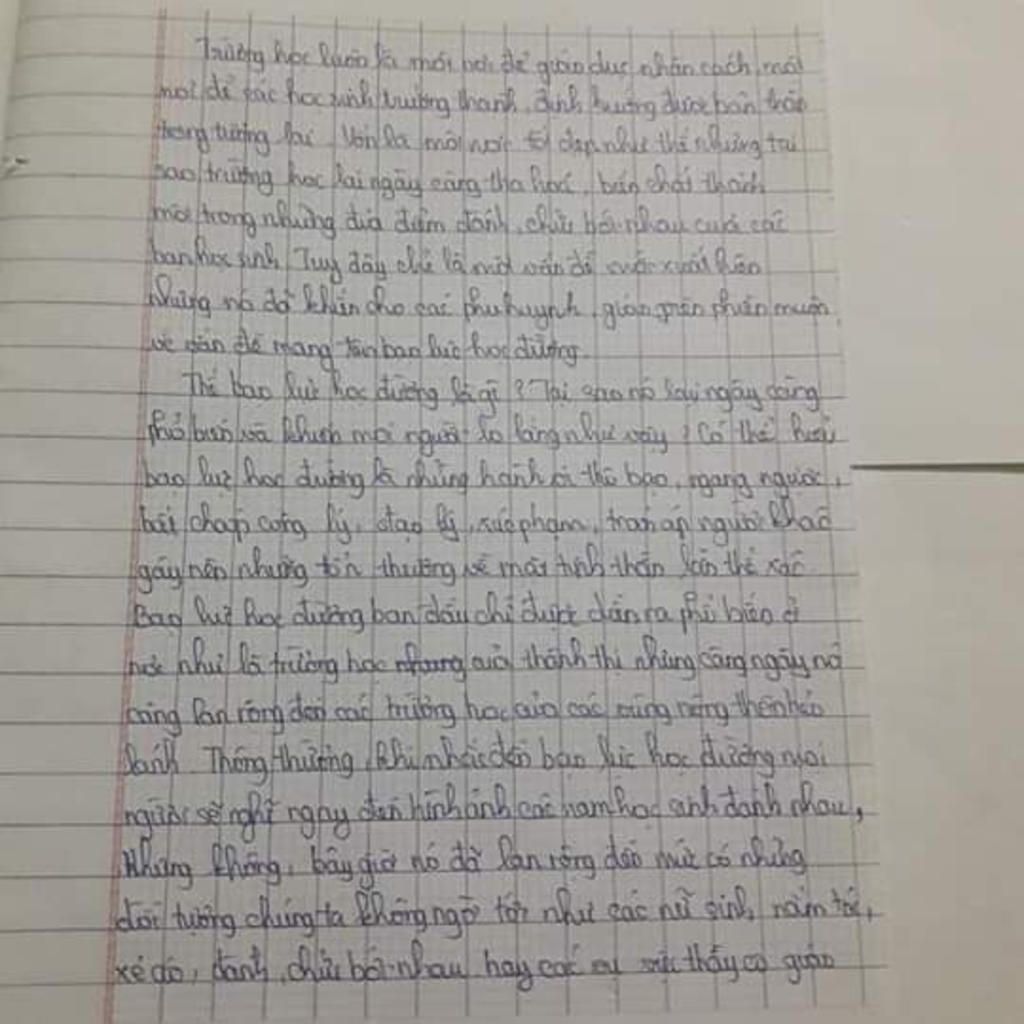 Trường học luôn là một nơi để giáo dục nhân cách, một
nơi để các học sinh trưởng thành, định hướng được bản thân
trong tương lai. Vốn là một nơi tốt đẹp như thế nhưng tại
sao trường học lại ngày càng tha hoá, biến chất thành
một trong những địa điểm đánh, chửi bới nhau của các
bạn học sinh. Tuy đây chỉ là một vấn đề mới xuất hiện
nhưng nó đã khiến cho các phụ huynh, giáo viên phiền muộn
về vấn đề mang tên bạo lực học đường.
Thế bạo lực học đường là gì? Tại sao nó lại ngày càng
phổ biến và khiến mọi người lo lắng như vậy? Có thể hiểu
bạo lực học đường là những hành vi thô bạo, ngang ngược,
bất chấp công lý, đạo lý, xúc phạm, trấn áp người khác
gây nên những tổn thương về mặt tinh thần lẫn thể xác.
Bạo lực học đường ban đầu chỉ được diễn ra phổ biến ở
nơi như là trường học của thành thị nhưng càng ngày nó
càng lan rộng đến các trường học của các vùng nông thôn hẻo
lánh. Thông thường, khi nhắc đến bạo lực học đường mọi
người sẽ nghĩ ngay đến hình ảnh các nam học sinh đánh nhau,
Nhưng không, bây giờ nó đã lan rộng đến mức có những
đối tượng chúng ta không ngờ tới như các nữ sinh, nắm tóc,
xé áo, đánh, chửi bới nhau hay các thầy cô giáo